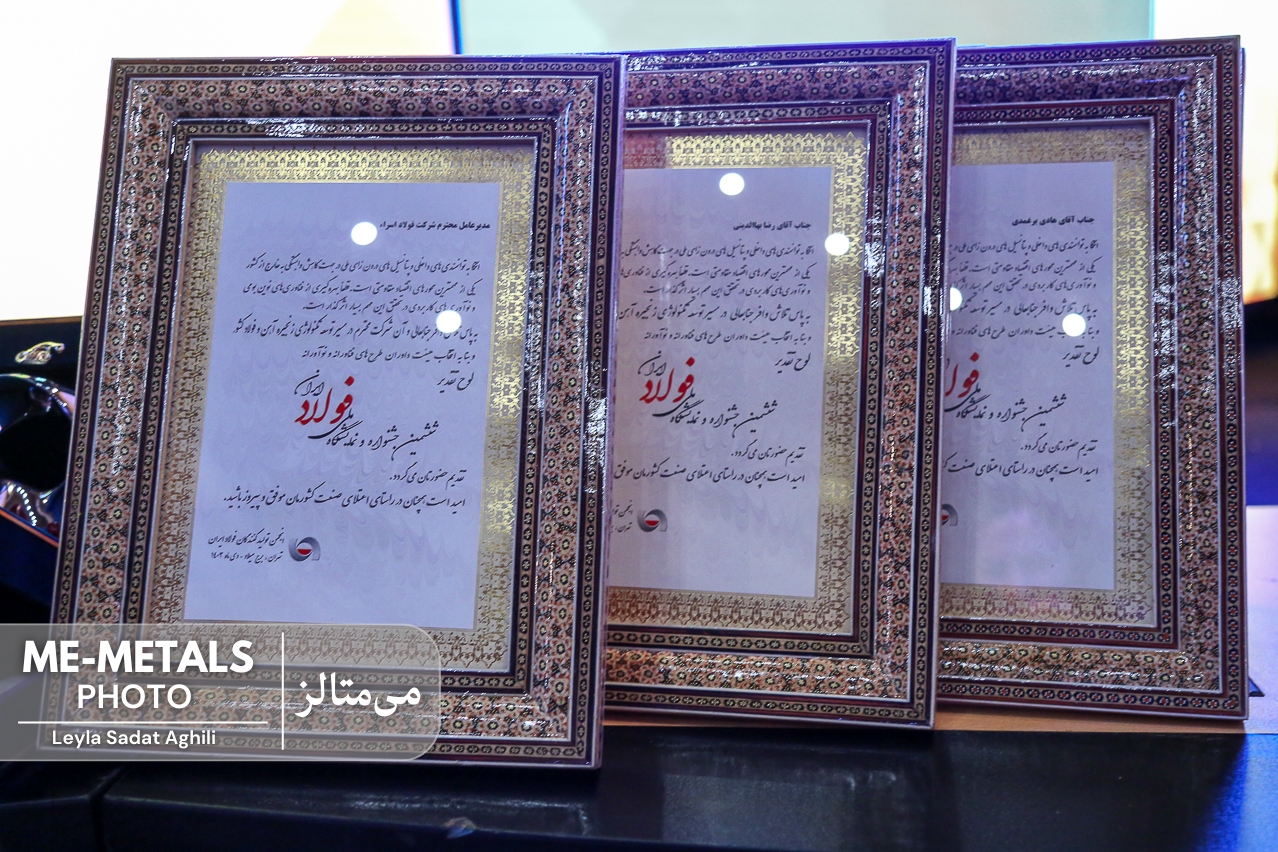 مدیرعامل محترم شرکت فولاد اسراء
اتکا به توانمندی های داخلی و پتانسیل های درون زای ملی در جهت کاهش وابستگی به خارج از کشور
یکی از مهمترین محورهای اقتصاد مقاومتی است. قطعا بهره گیری از فناوری های نوین بومی
و نوآوری های کاربردی در تحقق این مهم بسیار اثرگذار است.
به پاس تلاش وافر جنابعالی و آن شرکت محترم در مسیر توسعه تکنولوژی زنجیره آهن و فولاد کشور
و بنا به انتخاب هیئت داوران طرح های فناورانه و نوآورانه
لوح تقدیر
ششمین جشنواره و نمایشگاه ملی فولاد ایران
تقدیم حضورتان می گردد.
امید است همچنان در راستای اعتلای صنعت کشورمان موفق و پیروز باشید.
انجمن تولیدکنندگان فولاد ایران
تهران، برج میلاد - دی ماه ۱۴۰۳
جناب آقای رضا بهاالدینی
اتکا به توانمندی های داخلی و پتانسیل های درون زای ملی در جهت کاهش وابستگی
یکی از مهمترین محورهای اقتصاد مقاومتی است. قطعا بهره گیری از فناوری های
و نوآوری های کاربردی در تحقق این مهم بسیار اثرگذار است.
به پاس تلاش وافر جنابعالی در مسیر توسعه تکنولوژی زنجیره آهن
و بنا به انتخاب هیئت داوران طرح های فناورانه و نوآورانه
لوح تقدیر
ششمین جشنواره و نمایشگاه ملی فولاد ایران
تقدیم حضورتان می گردد.
امید است همچنان در راستای اعتلای صنعت کشورمان موفق
جناب آقای هادی برغمدی
اتکا به توانمندی های داخلی و پتانسیل های درون زای ملی در
یکی از مهمترین محورهای اقتصاد مقاومتی است. قطعا
و نوآوری های کاربردی در تحقق این مهم بسیار
به پاس تلاش وافر جنابعالی در مسیر توسعه
و بنا به انتخاب هیئت داوران طرح های
لوح تقدیر
ششمین جشنواره و نمایشگاه ملی
تقدیم حضورتان می گردد.
امید است همچنان در راستای اعتلای صنعت
ME-METALS
PHOTO
می‌متالز
Leyla Sadat Aghili